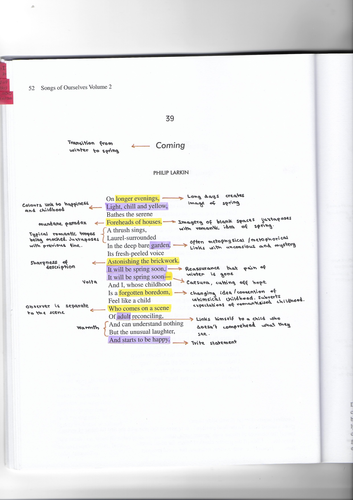 52 Songs of Ourselves Volume 2
39
Transition from
winter to spring
Coming
PHILIP LARKIN
On longer evenings,
Long days creates
image of spring
Colours link to happiness
and childhood
Light, chill and yellow,
Bathes the serene
mundane, paradox
Foreheads of houses.
Imagery of blank spaces juxtaposes
with romantic idea of spring
Typical romantic images
being mocked. Juxtaposes
with previous line.
A thrush sings,
Laurel-surrounded
In the deep bare garden,
Often metaphysical/metaphorical
Links with unconscious and mystery
Its fresh-peeled voice
Sharpness of
description
Astonishing the brickwork.
It will be spring soon,
Reassurance that pain of
winter is gone
Volta
It will be spring soon—
Caesura, cutting off hope
And I, whose childhood
Is a forgotten boredom,
changing idea/convention of
whimsical childhood. Subverts
expectations of romanticised childhood.
Feel like a child
Observer is separate
to the scene
Who comes on a scene
Of adult reconciling,
Links himself to a child who
doesn't comprehend what they
see
Warmth
And can understand nothing
But the unusual laughter,
And starts to be happy.
Trite statement